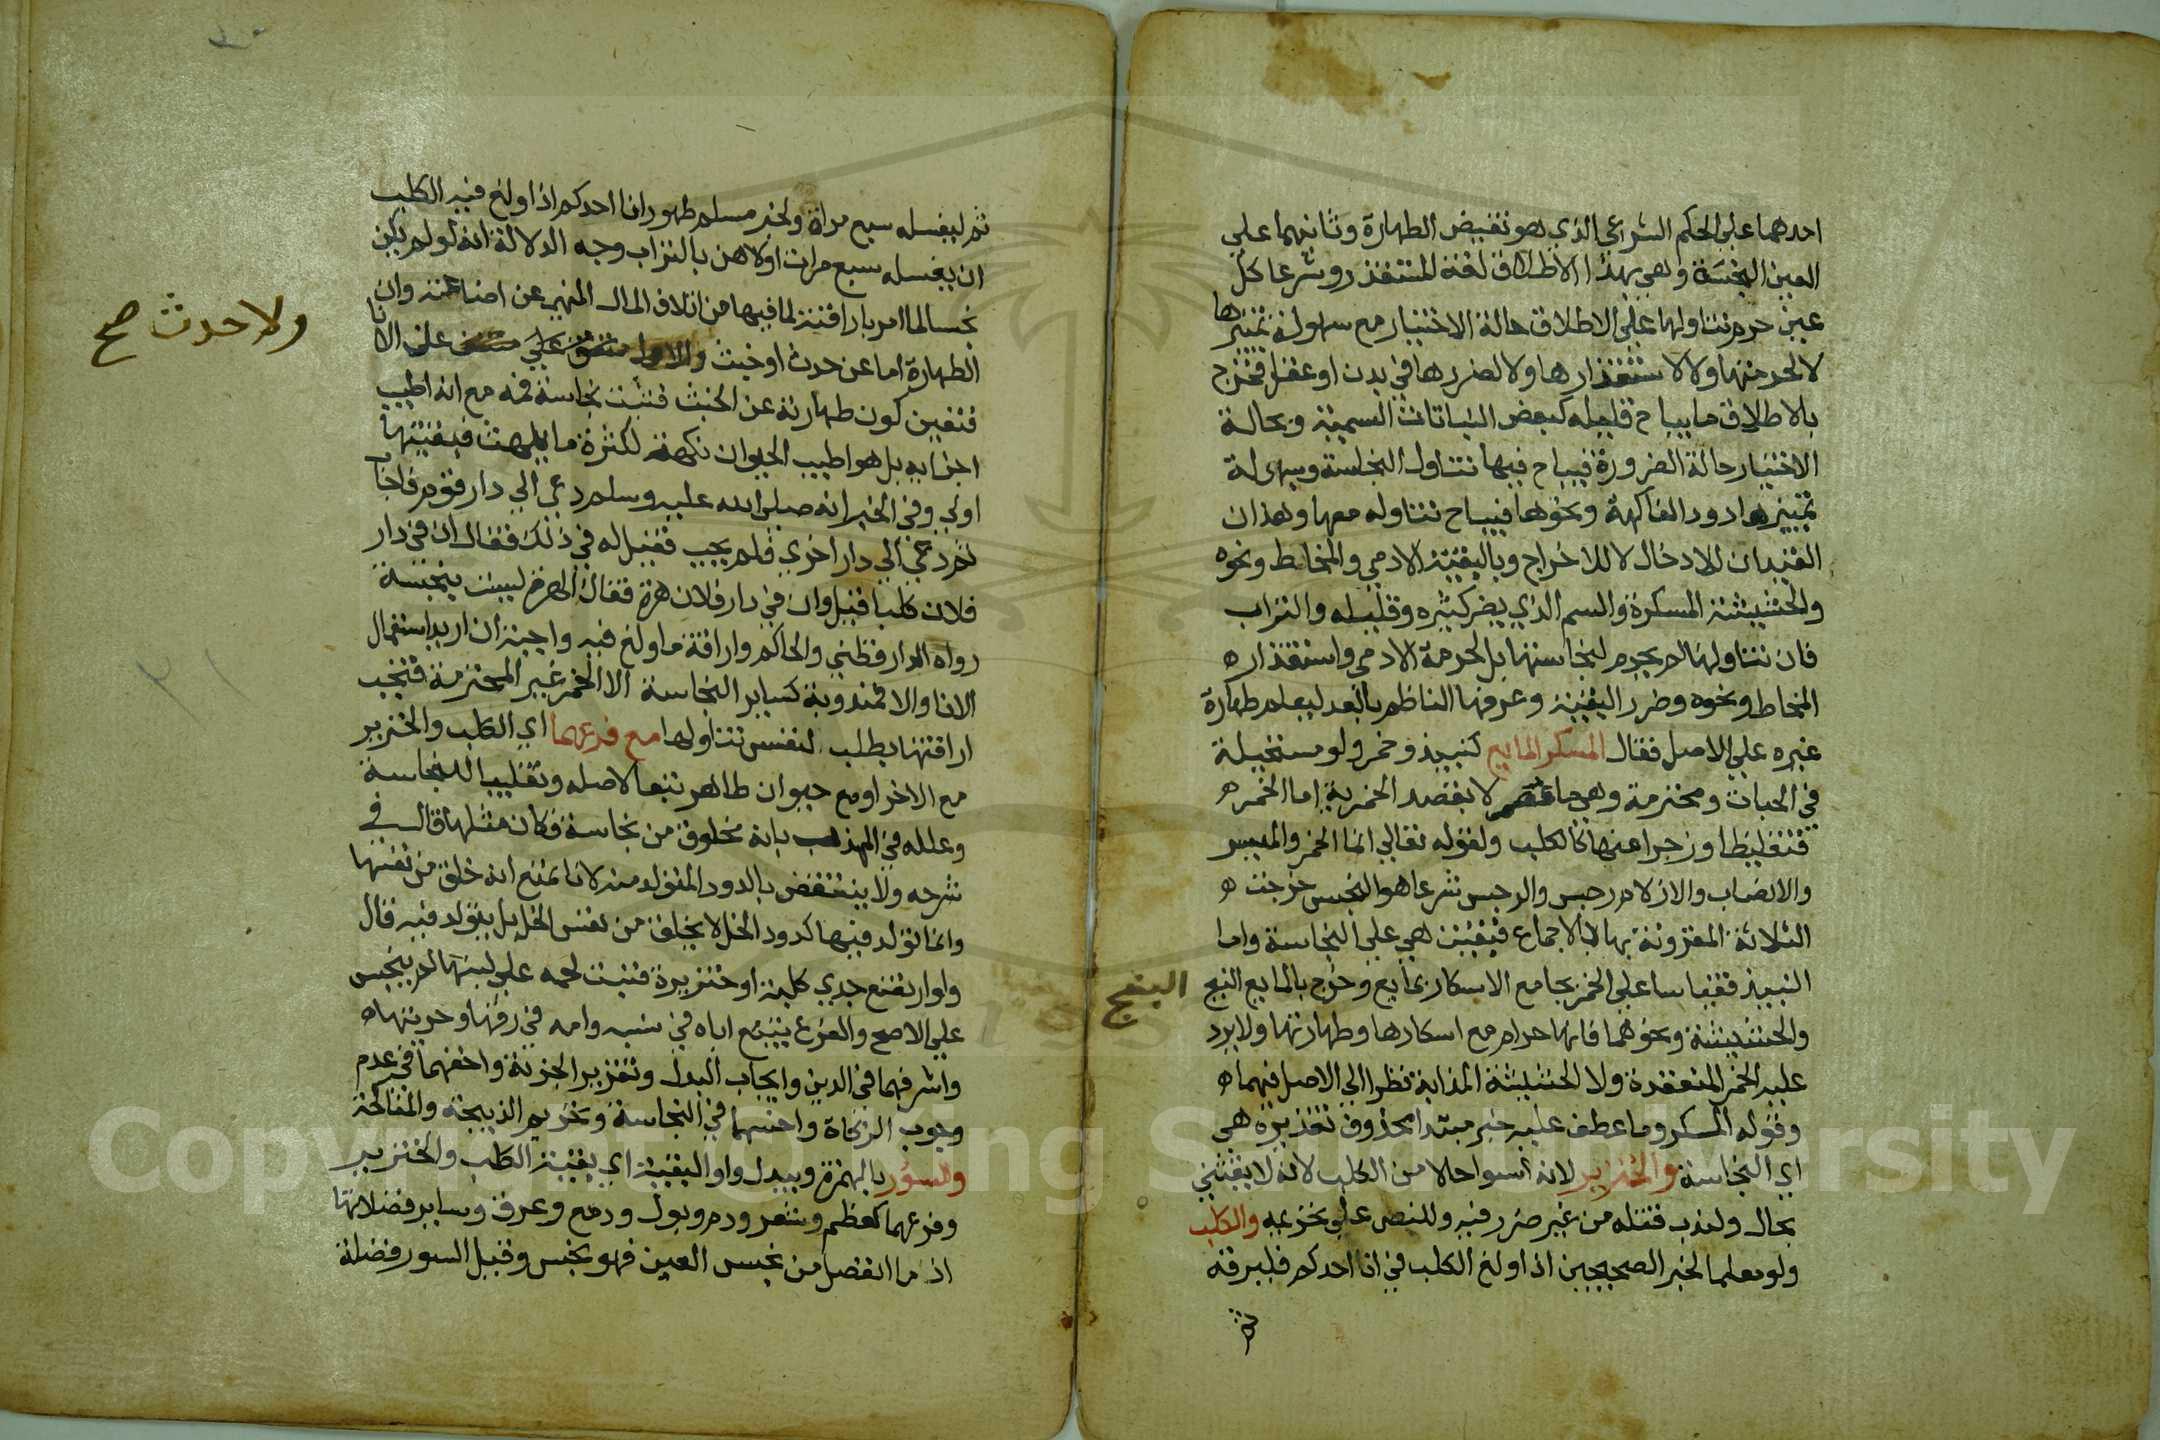 احدهما على الحكم الشرعي الذي هو نقيض الطهارة وثانيهما على
العين النجسة وهي بهذا الاطلاق لغة المستقذر وشرعا كل
عين حرم تناولها على الاطلاق حالة الاختيار مع سهولة تمييزها
لا لحرمتها ولا لاستقذارها ولا لضررها في بدن او عقل فخرج
بالاطلاق ما يباح قليله كبعض النباتات السمية وبحالة
الاختيار حالة الضرورة فيباح فيها تناول النجاسة وسهولة
تمييزها دود الفاكهة ونحوها فيباح تناوله معها وهذان
القيدان للادخال لا للاخراج وبالبقية الادمي والمخاط ونحوه
والحشيشة المسكرة والسم الذي يضر كثيره وقليله والتراب
فان تناولها لم يحرم لنجاستها بل لحرمة الادمي واستقذاره
المخاط ونحوه وضرر البقية وعرفها الناظم بالعد ليعلم طهارة
غيره على الاصل فقال المسكر المايع كنبيذ وخمر ولو مستحيلة
في الحبات ومحترمة وهي ما لا بقصد الخمرية اما الخمره
فتغليظا وزجرا عنها كالكلب ولقوله تعالى انما الخمر والميسر
والانصاب والازلام رجس والرجس شرعا هو النجس خرجت ه
الثلاثة المقرونة بها بالاجماع فبقيت هي على النجاسة واما
النبيذ فقياسا على الخمر بجامع الاسكار بمايع وخرج بالمايع البنج
البنج
والحشيشة ونحوهما فانها حرام مع اسكارها وطهارتها ولا يرد
عليه الخمر المنعقدة ولا الحشيشة المذابة نظرا الى الاصل فيهما ه
وقوله المسكر وما عطف عليه خبر مبتدا محذوف تقديره هي
اي النجاسة والخنزير لانه اسوا حالا من الكلب لانه لا يقتنى
بحال ولندب قتله من غير ضرر فيه وللنص على تحريمه والكلب
ولو معلما لخبر الصحيحين اذا ولغ الكلب في انا احدكم فليرقه
ثم
ثم ليغسله سبع مراة ولخبر مسلم طهور انا احدكم اذا ولغ فيه الكلب
ان يغسله سبع مرات اولاهن بالتراب وجه الدلالة انه لو لم يكن
نجسا لما امر باراقته لما فيها من اتلاف المال المنهي عن اضاعته وان
الطهارة اما عن حدث او خبث على الانا
ولا حدث صح
فتعين كون طهارته عن الخبث فثبت نجاسة فمه مع انه اطيب
اجزايه بل هو اطيب الحيوان نكهة لكثرة ما يلهث فبقيتها
اولى وفي الخبر انه صلى الله عليه وسلم دعي الى دار قوم فاجاب
ثم دعي الى دار اخرى فلم يجب فقيل له في ذلك فقال ان في دار
فلان كلبا قيل وان في دار فلان هرة فقال الهرة ليست بنجسة
رواه الدارقطني والحاكم واراقة ما ولغ فيه واجبة ان اريد استعمال
الانا والا فمندوبة كساير النجاسة الا الخمر غير المحترمة فتجب
اراقتها بطلب النفس تناولها مع فرعهما اي الكلب والخنزير
مع الاخر او مع حيوان طاهر تبعا لاصله وتغليبا للنجاسة
وعلله في المهذب بانه مخلوق من نجاسة فكان مثلها قال في
شرحه ولا ينتقض بالدود المتولد منه لانا نمنع انه خلق من نفسها
وانما تولد فيها كدود الخل لا يخلق من نفس الخل بل يتولد فيه قال
ولو ارتضع جدي كلبة او خنزيرة فنبت لحمه على لبنها لم ينجس
على الاصح والفرع يتبع اباه في نسبه وامه في رقها وحريتها ه
واشرفهما في الدين وايجاب البدل وتقرير الجزية واخفهما في عدم
وجوب الزكاة واخسهما في النجاسة وتحريم الذبيحة والمناكحة
والسؤر بالهمزة ويبدل واوا البقية اي بقية الكلب والخنزير
وفرعهما كعظم وشعر ودم وبول ودمع وعرق وساير فضلاتها
اذ ما انفصل من نجس العين فهو نجس وقيل السور فضلة
Copyright © King Saud University